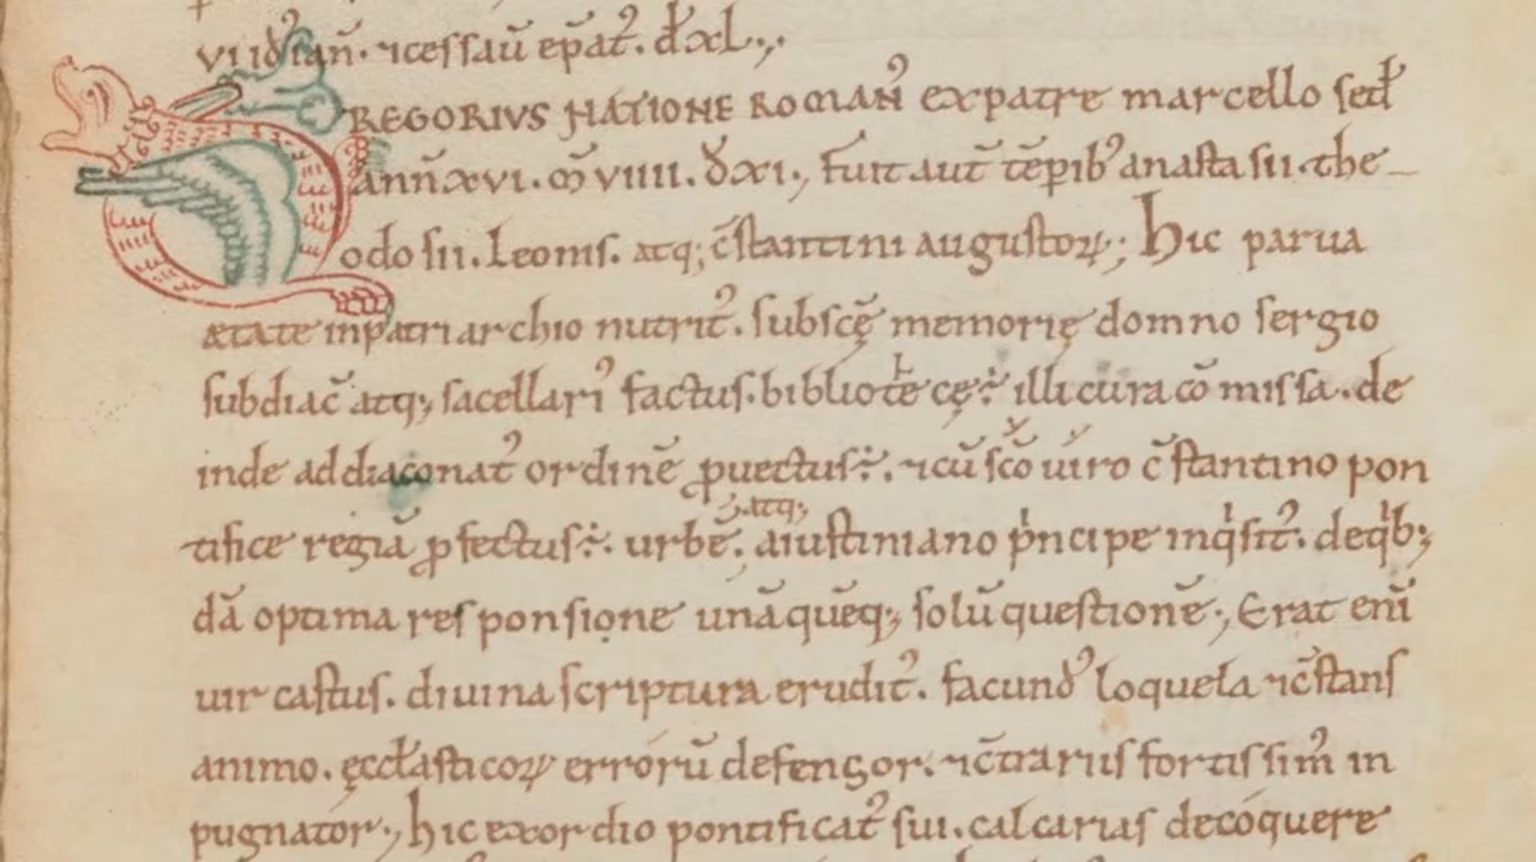 vi id ian̄. ⁊ cessaū ep̄at᾽. d̄ xl.,.
GREGORIVS NATIONE ROMAN᾽ ex patre marcello sed̄
ann̄ xvi. m̄ viiii. d̄ xi., Fuit aut̄ tēpib᾽ anastasii. the
odosii. Leonis. atq; c̄stantini augustoꝝ; hic parua
ætate in patriarchio nutrit᾽. sub sc̄ę memorię domno sergio
subdiac̄ atq; sacellari᾽ factus. bibliotħecę ÷ illi cura cōmissa. de
inde ad diaconat᾽ ordinē ꝓuectus ÷. ⁊ cū sc̄o uiro c̄stantino pon
tifice regiā ꝓfectus ÷. urbē. atq; a iustiniano pͥncipe inqͥsit᾽. de qͥb;
dā optima responsione unāquēq; soluˉ questionē; Erat enī
uir castus. diuina scriptura erudit᾽. facund᾽ loquela ⁊ c̄stans
animo. ęcclāsticoꝝ errorū defensor. ⁊ c̄trariis fortissim᾽ in
pugnator., hic exordio pontificat᾽ sui. calcarias decoquere